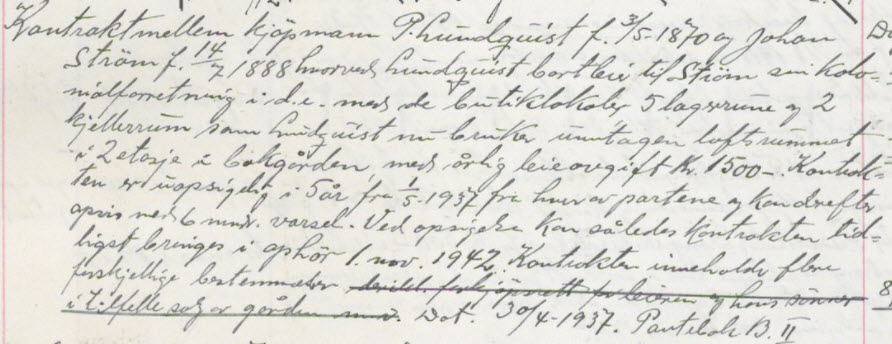 Kontrakt mellem kjöpmann P. Lundquist f. 3/5-1870 og Johan
Ström f. 14/7 1888 hvorved Lundquist bortleier til Ström sin kolo=
nialforretning i d.e. med de butiklokaler 5 lagerrume og 2
kjellerrum som Lundquist nu bruker unntagen loftsrummet
i 2 etasje i bakgården, med årlig leieavgift Kr. 1500-. Kontrak=
ten er uopsigelig i 5 år fra 1/5-1937 fra hver av partene og kan derefter
opsies med 6 mndr. varsel. Ved opsigelse kan således kontrakten tid=
ligst bringes i ophör 1. nov. 1942. Kontrakten inneholder flere
forskjellige bestemmelser deriblt forkjöpsrett for leieren og hans sönner
i tilfelle salg av gården Dat. 30/4-1937. Pantebok B. II
8